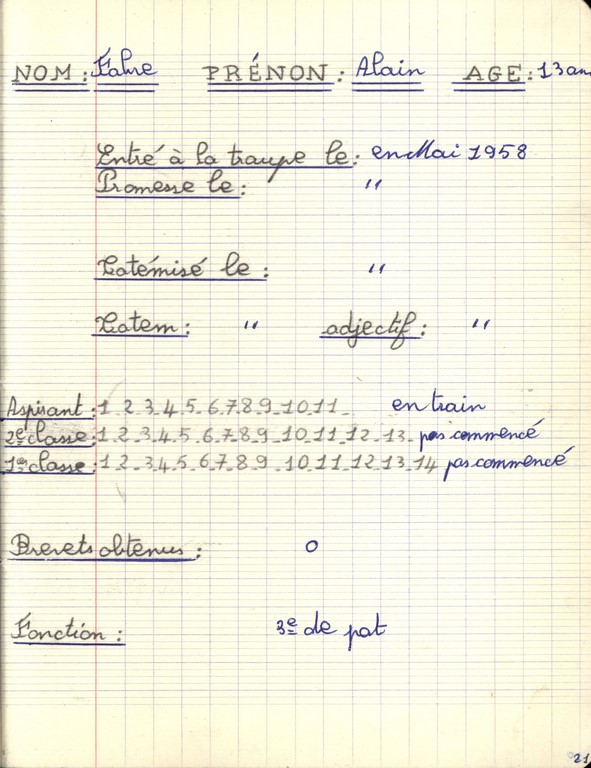 NOM : Fabre PRÉNON : Alain AGE : 13 ans
Entré à la troupe le : en Mai 1958
Promesse le : "
Totémisé le : "
Totem : " adjectif : "
Aspirant : 1_2_3_4_5_6_7_8_9_10_11_ en train
2e classe : 1_2_3_4_5_6_7_8_9_10_11_12_13_ pas commencé
1er classe : 1_2_3_4_5_6_7_8_9_10_11_12_13_14 pas commencé
Brevets obtenus : 0
Fonction : 3e de pat
21